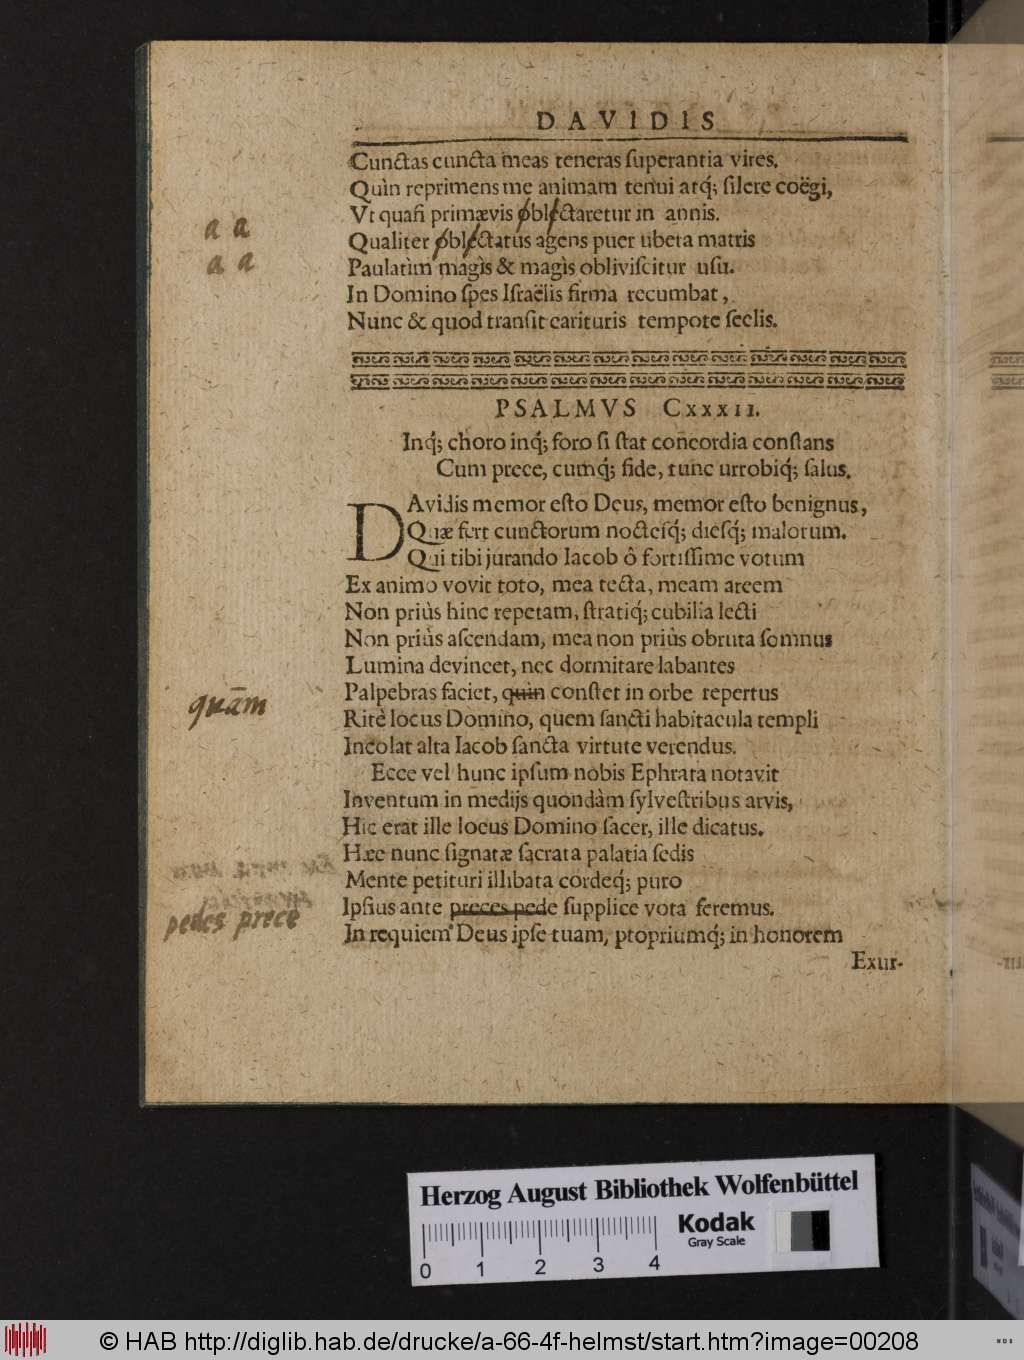 DAVIDIS
Cunctas cuncta meas teneras ſuperantia vires.
Quìn reprimens me animam tenui atq́; ſilere coëgi,
Vt quaſi primævis oblectaretur in annis.
a a
Qualiter oblectatus agens puer ubera matris
a a
Paulatìm magìs & magìs obliviſcitur uſu.
In Domino ſpes Iſraëlis firma recumbat,
Nunc & quod tranſit carituris tempore ſeclis.
PSALMVS CXXXII.
Inq́; choro inq́; foro ſi ſtat concordia conſtans
Cum prece, cumq́; fide, tunc utrobiq́; ſalus.
DAvidis memor eſto Deus, memor eſto benignus,
Quæ fert cunctorum nocteſq́; dieſq́; malorum.
Qui tibi jurando Iacob ô fortiſſime votum
Ex animo vovit toto, mea tecta, meam arcem
Non priùs hinc repetam, ſtratiq́; cubilia lecti
Non priùs aſcendam, mea non priùs obruta ſomnus
Lumina devincet, nec dormitare labantes
Palpebras faciet, quìn conſtet in orbe repertus
quām
Ritè locus Domino, quem ſancti habitacula templi
Incolat alta Iacob ſancta virtute verendus.
Ecce vel hunc ipſum nobis Ephrata notavit
Inventum in medijs quondàm ſylveſtribus arvis,
Hic erat ille locus Domino ſacer, ille dicatus.
Hæc nunc ſignatæ ſacrata palatia ſedis
Mente petituri illibata cordeq́; puro
Ipſius ante preces pede ſupplice vota feremus.
pedes prece
In requiem Deus ipſe tuam, ptopriumq́; in honorem
Exur-
Herzog August Bibliothek Wolfenbüttel
Kodak
Gray Scale
0 1 2 3 4
© HAB http://diglib.hab.de/drucke/a-66-4f-helmst/start.htm?image=00208